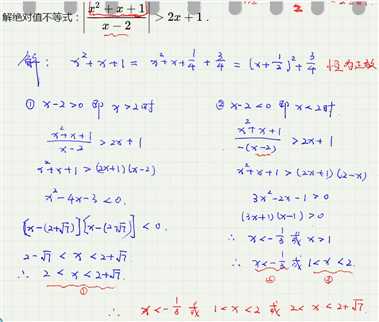 2
解绝对值不等式：|x²+x+1 / x-2| > 2x+1．
解： x²+x+1 = x²+x+1/4+3/4 = (x+1/2)²+3/4 恒为正数
① x-2>0 即 x>2时
(x²+x+1)/(x-2) > 2x+1
x²+x+1 > (2x+1)(x-2)
x²-4x-3<0.
[x-(2+√7)][x-(2-√7)] < 0.
2-√7 < x < 2+√7
∴ 2 < x < 2+√7.
①
② x-2<0 即 x<2时
(x²+x+1)/(-(x-2)) > 2x+1
x²+x+1 > (2x+1)(2-x)
3x²-2x-1>0
(3x+1)(x-1)>0
∴ x<-1/3 或 x>1
∴ x<-1/3 或 1<x<2.
∴ x<-1/3 或 1<x<2 或 2<x<2+√7.